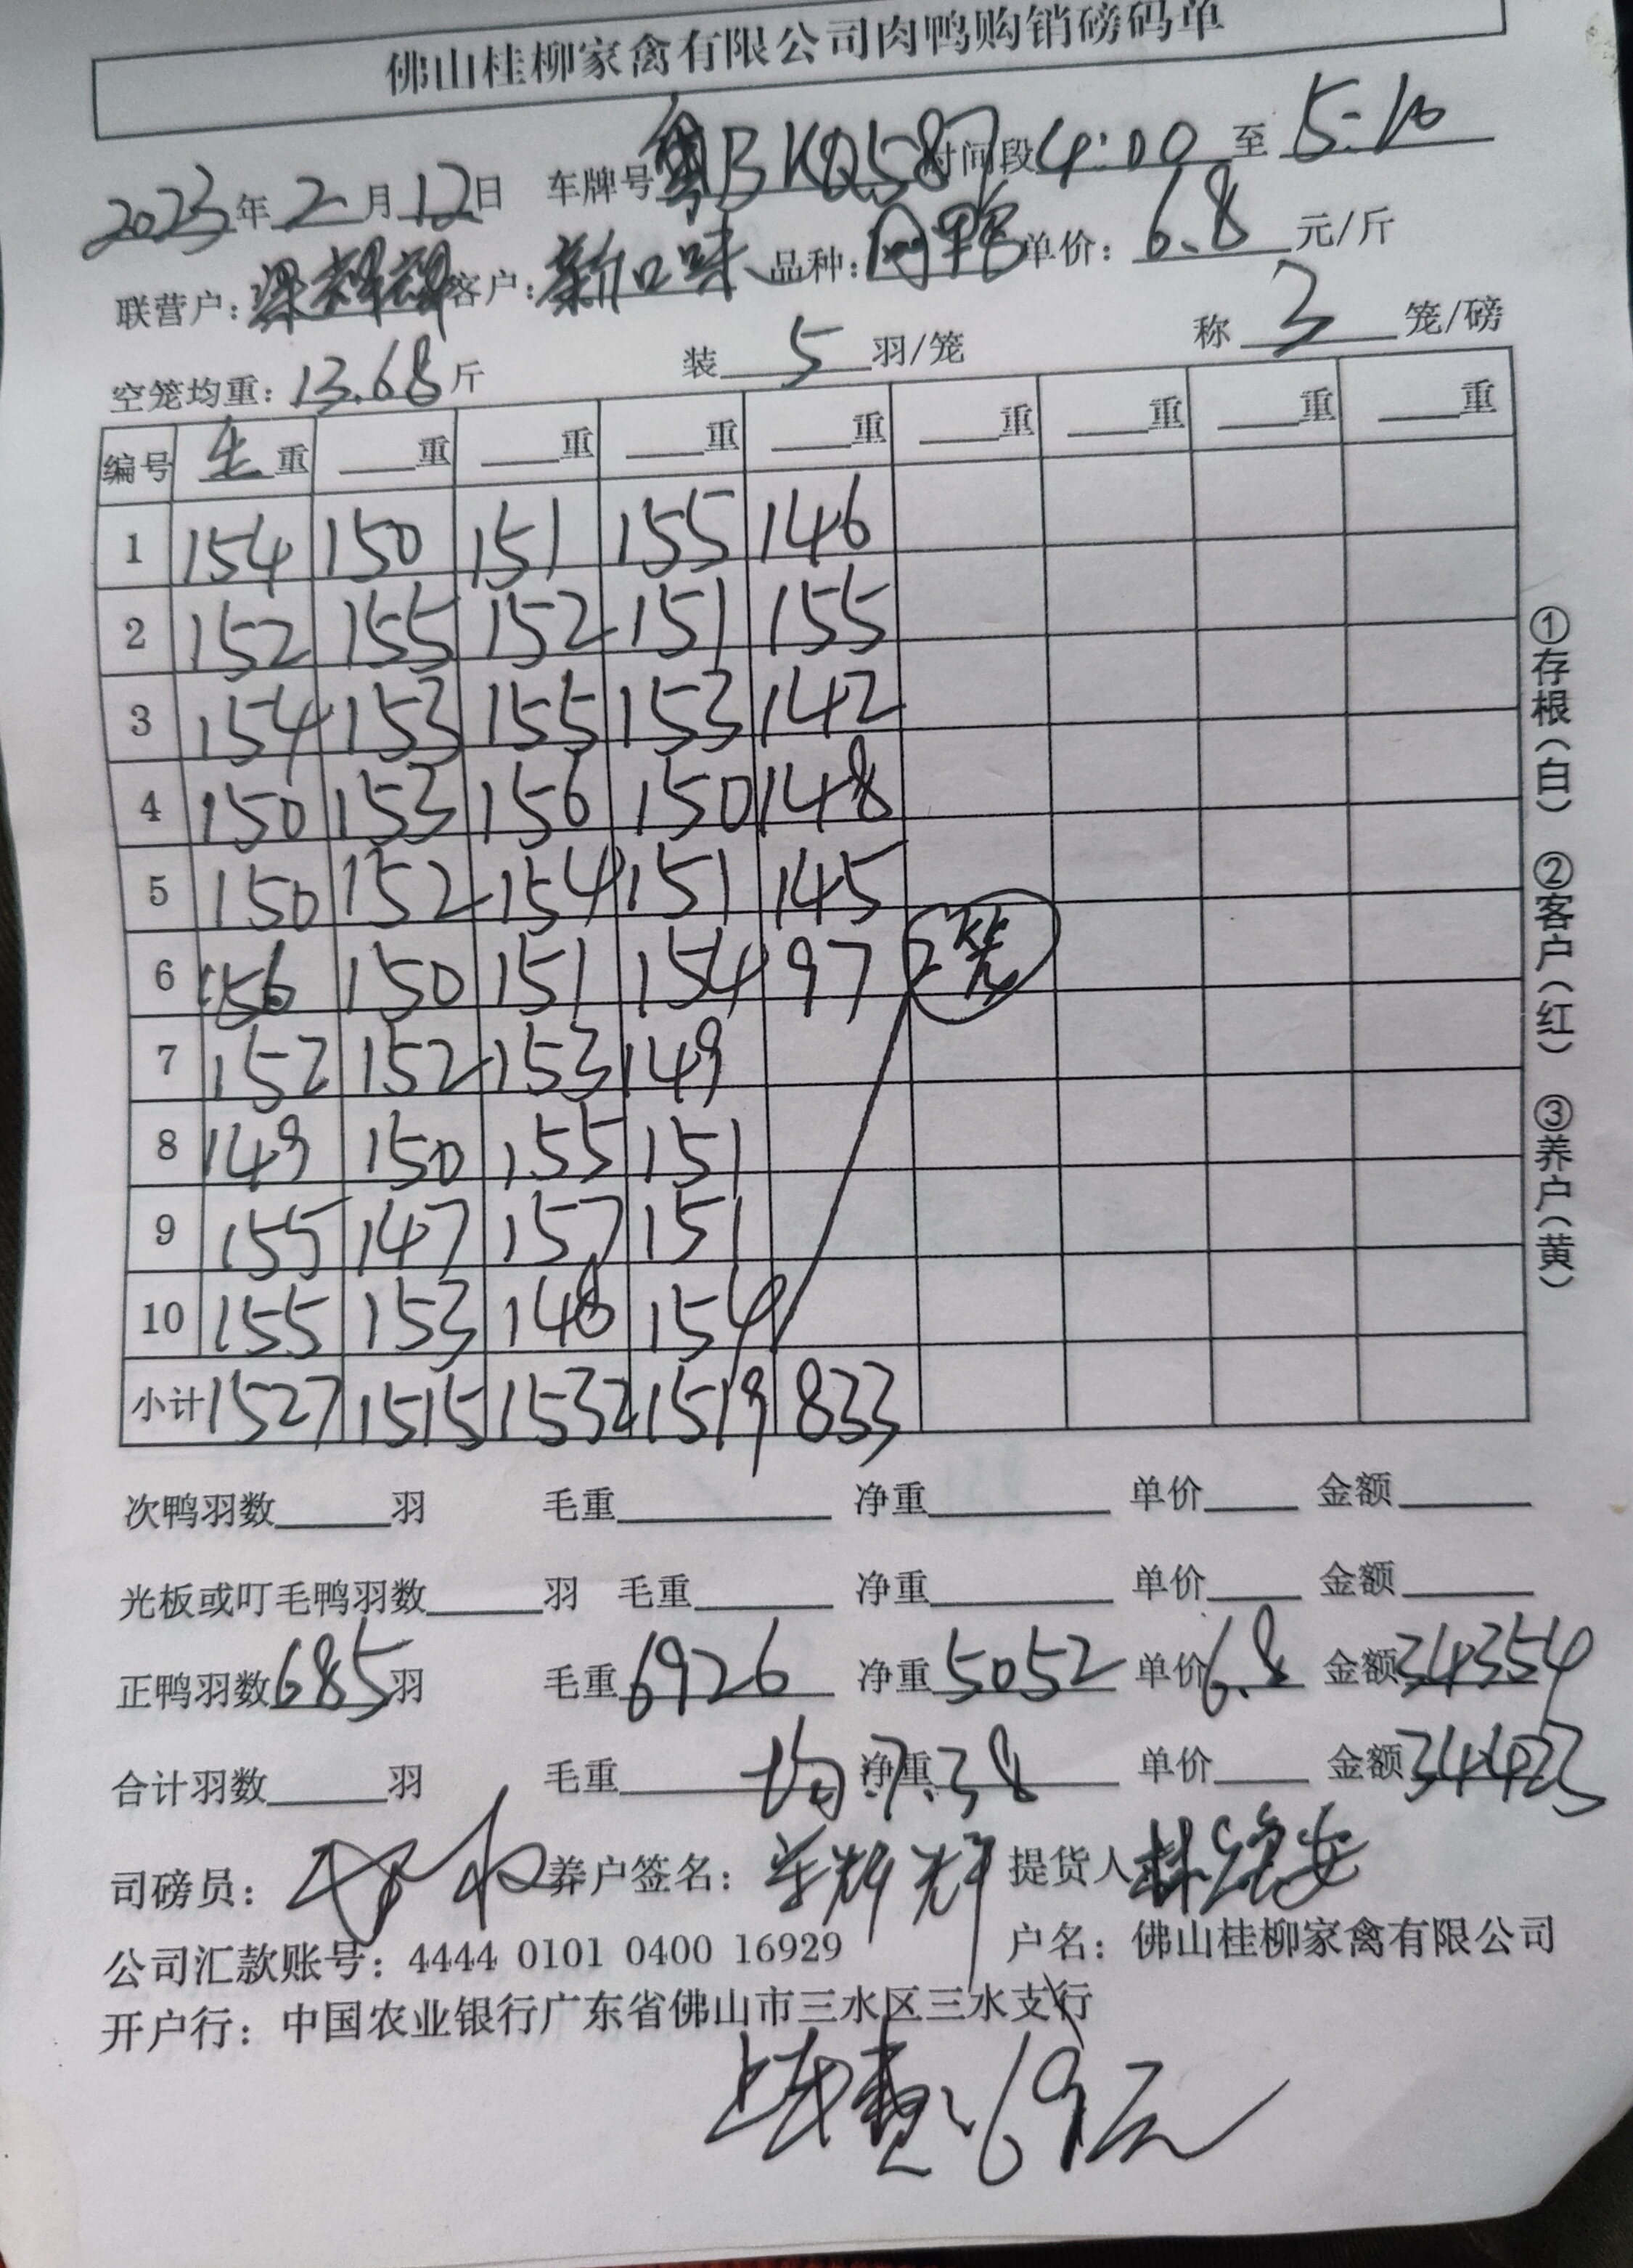 佛山桂柳家禽有限公司肉鸭购销磅码单
2023年2月12日 车牌号粤BKQ587时间段4:00至5:10
联营户:梁辉辉客户:新口味品种:肉鸭单价:6.8元/斤
空笼均重:13.68斤 装5羽/笼 称3笼/磅
编号 生重 重 重 重 重 重 重 重 重
1 154 150 151 155 146
2 152 155 152 151 155
3 154 153 155 153 142
4 150 153 156 150 148
5 150 152 154 151 145
6 156 150 151 154 97 2笼
7 152 152 153 149
8 149 150 155 151
9 155 147 157 151
10 155 153 148 154
小计 1527 1515 1532 1519 833
次鸭羽数 羽 毛重 净重 单价 金额
光板或叮毛鸭羽数 羽 毛重 净重 单价 金额
正鸭羽数685羽 毛重6926 净重5052 单价6.8 金额34354
合计羽数 羽 毛重 均:7.38 净重 单价 金额34423
司磅员: 养户签名:梁辉辉 提货人林 安
公司汇款账号:4444 0101 0400 16929 户名:佛山桂柳家禽有限公司
开户行:中国农业银行广东省佛山市三水区三水支行
上车费:69元
①存根(白) ②客户(红) ③养户(黄)